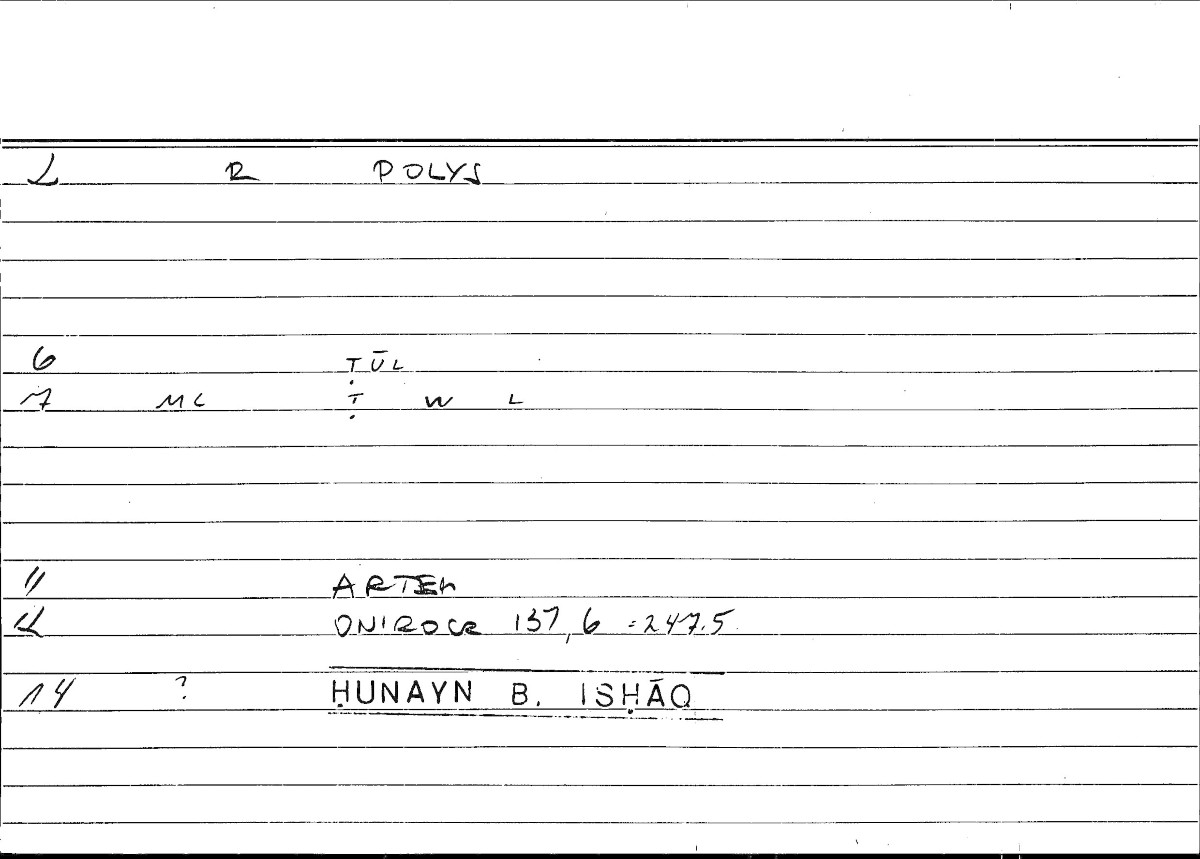 1 R POLYS
6 ṬŪL
7 MC Ṭ W L
11 ARTEM
12 ONIROCR 137,6 = 247.5
14 ? ḤUNAYN B. ISḤĀQ